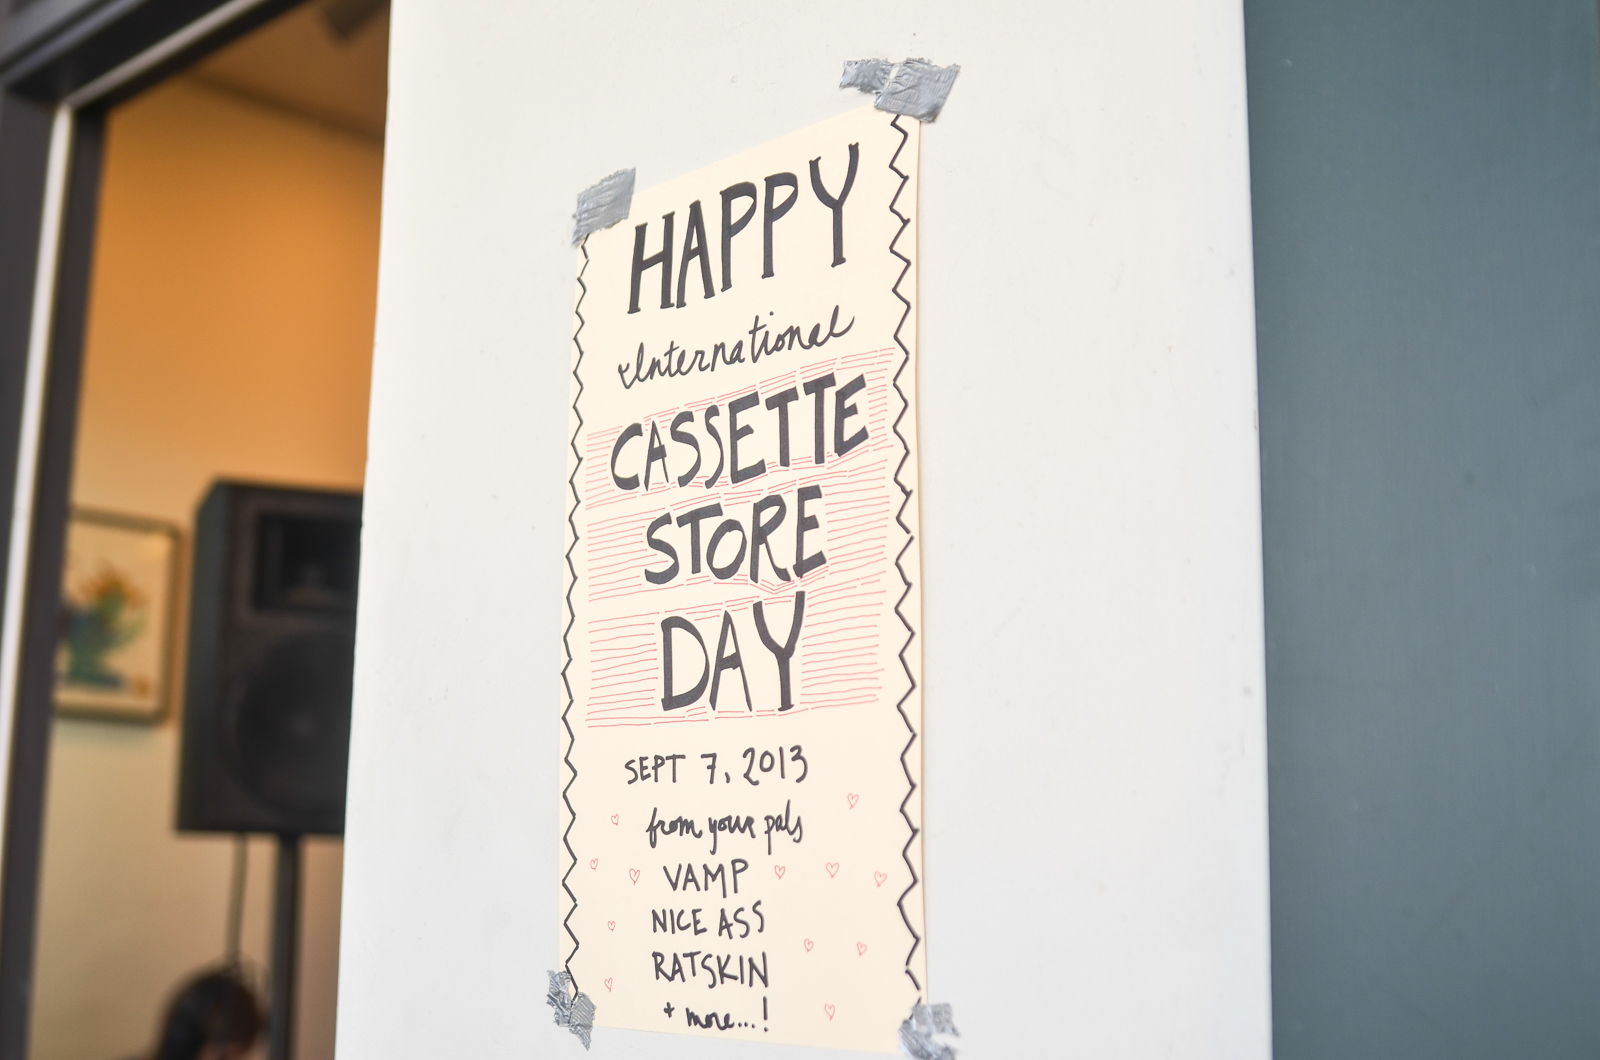 HAPPY
International
CASSETTE
STORE
DAY
SEPT 7, 2013
from your pals
VAMP
NICE ASS
RATSKIN
+ more...!